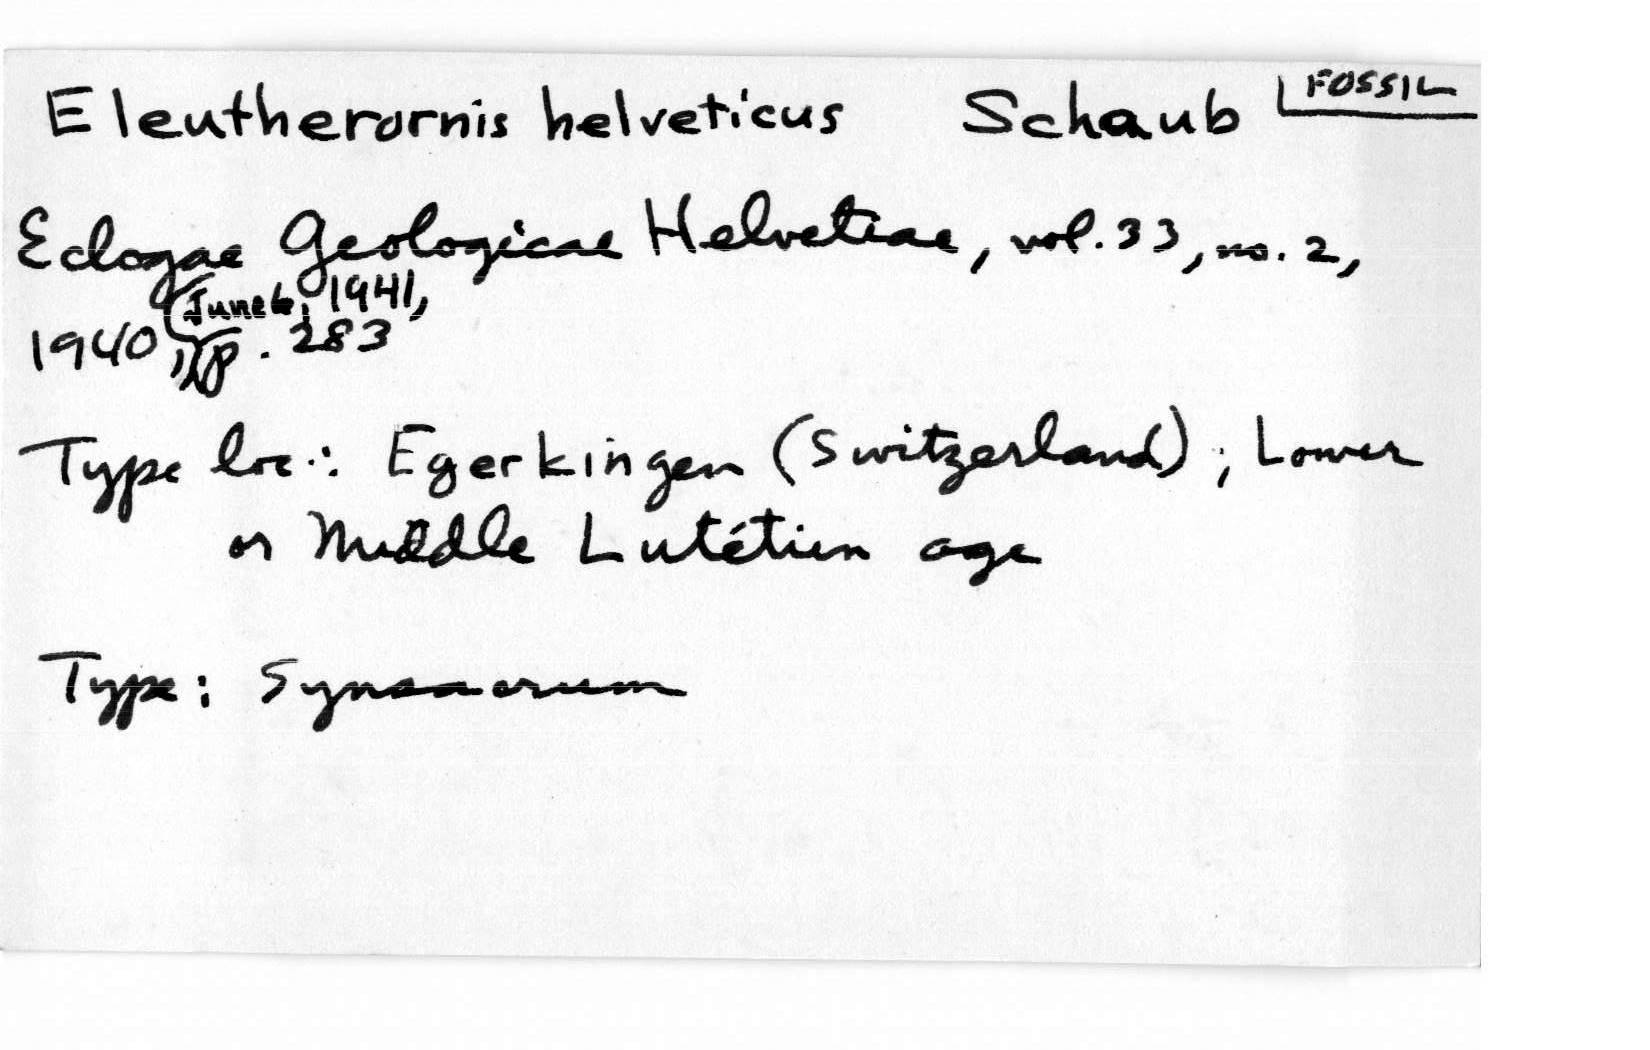 Eleutherornis helveticus Schaub FOSSIL
Eclogae Geologicae Helvetiae, vol. 33, no. 2,
June 6, 1941,
1940, p. 283
Type loc.: Egerkingen (Switzerland); Lower
or Middle Lutétien age
Type: Synsacrum